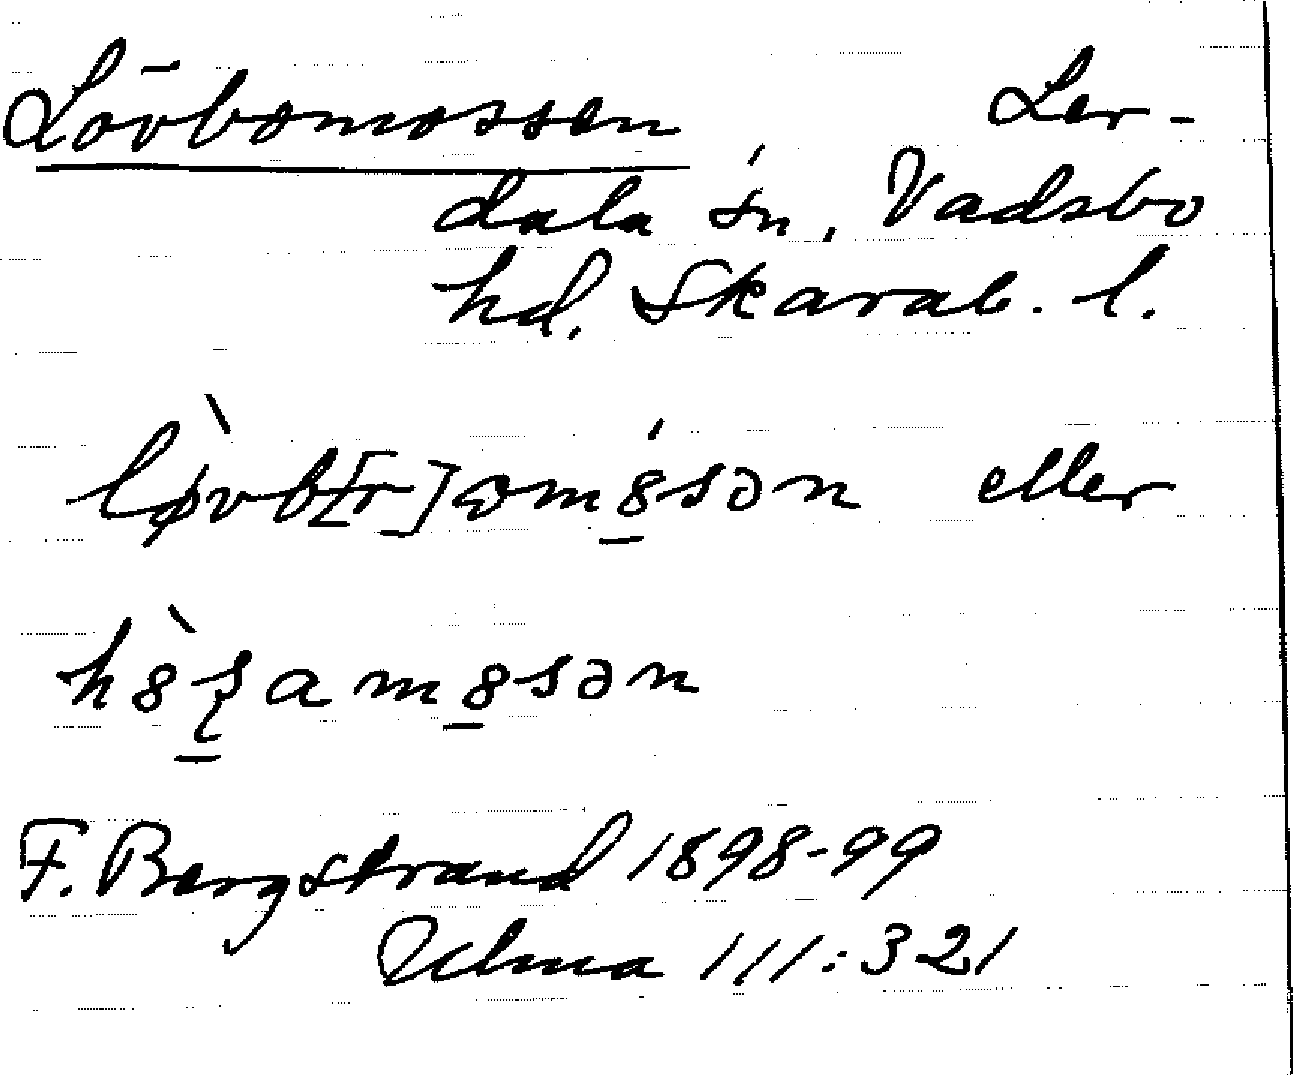 Lövbomossen Ler-
dala sn, Vadsbo
hd. Skarab. l.
lø̀vb[r]ωm8́sən eller
h8̀ʂam8sən
F. Bergstrand 1898-99
Ulma 111:321